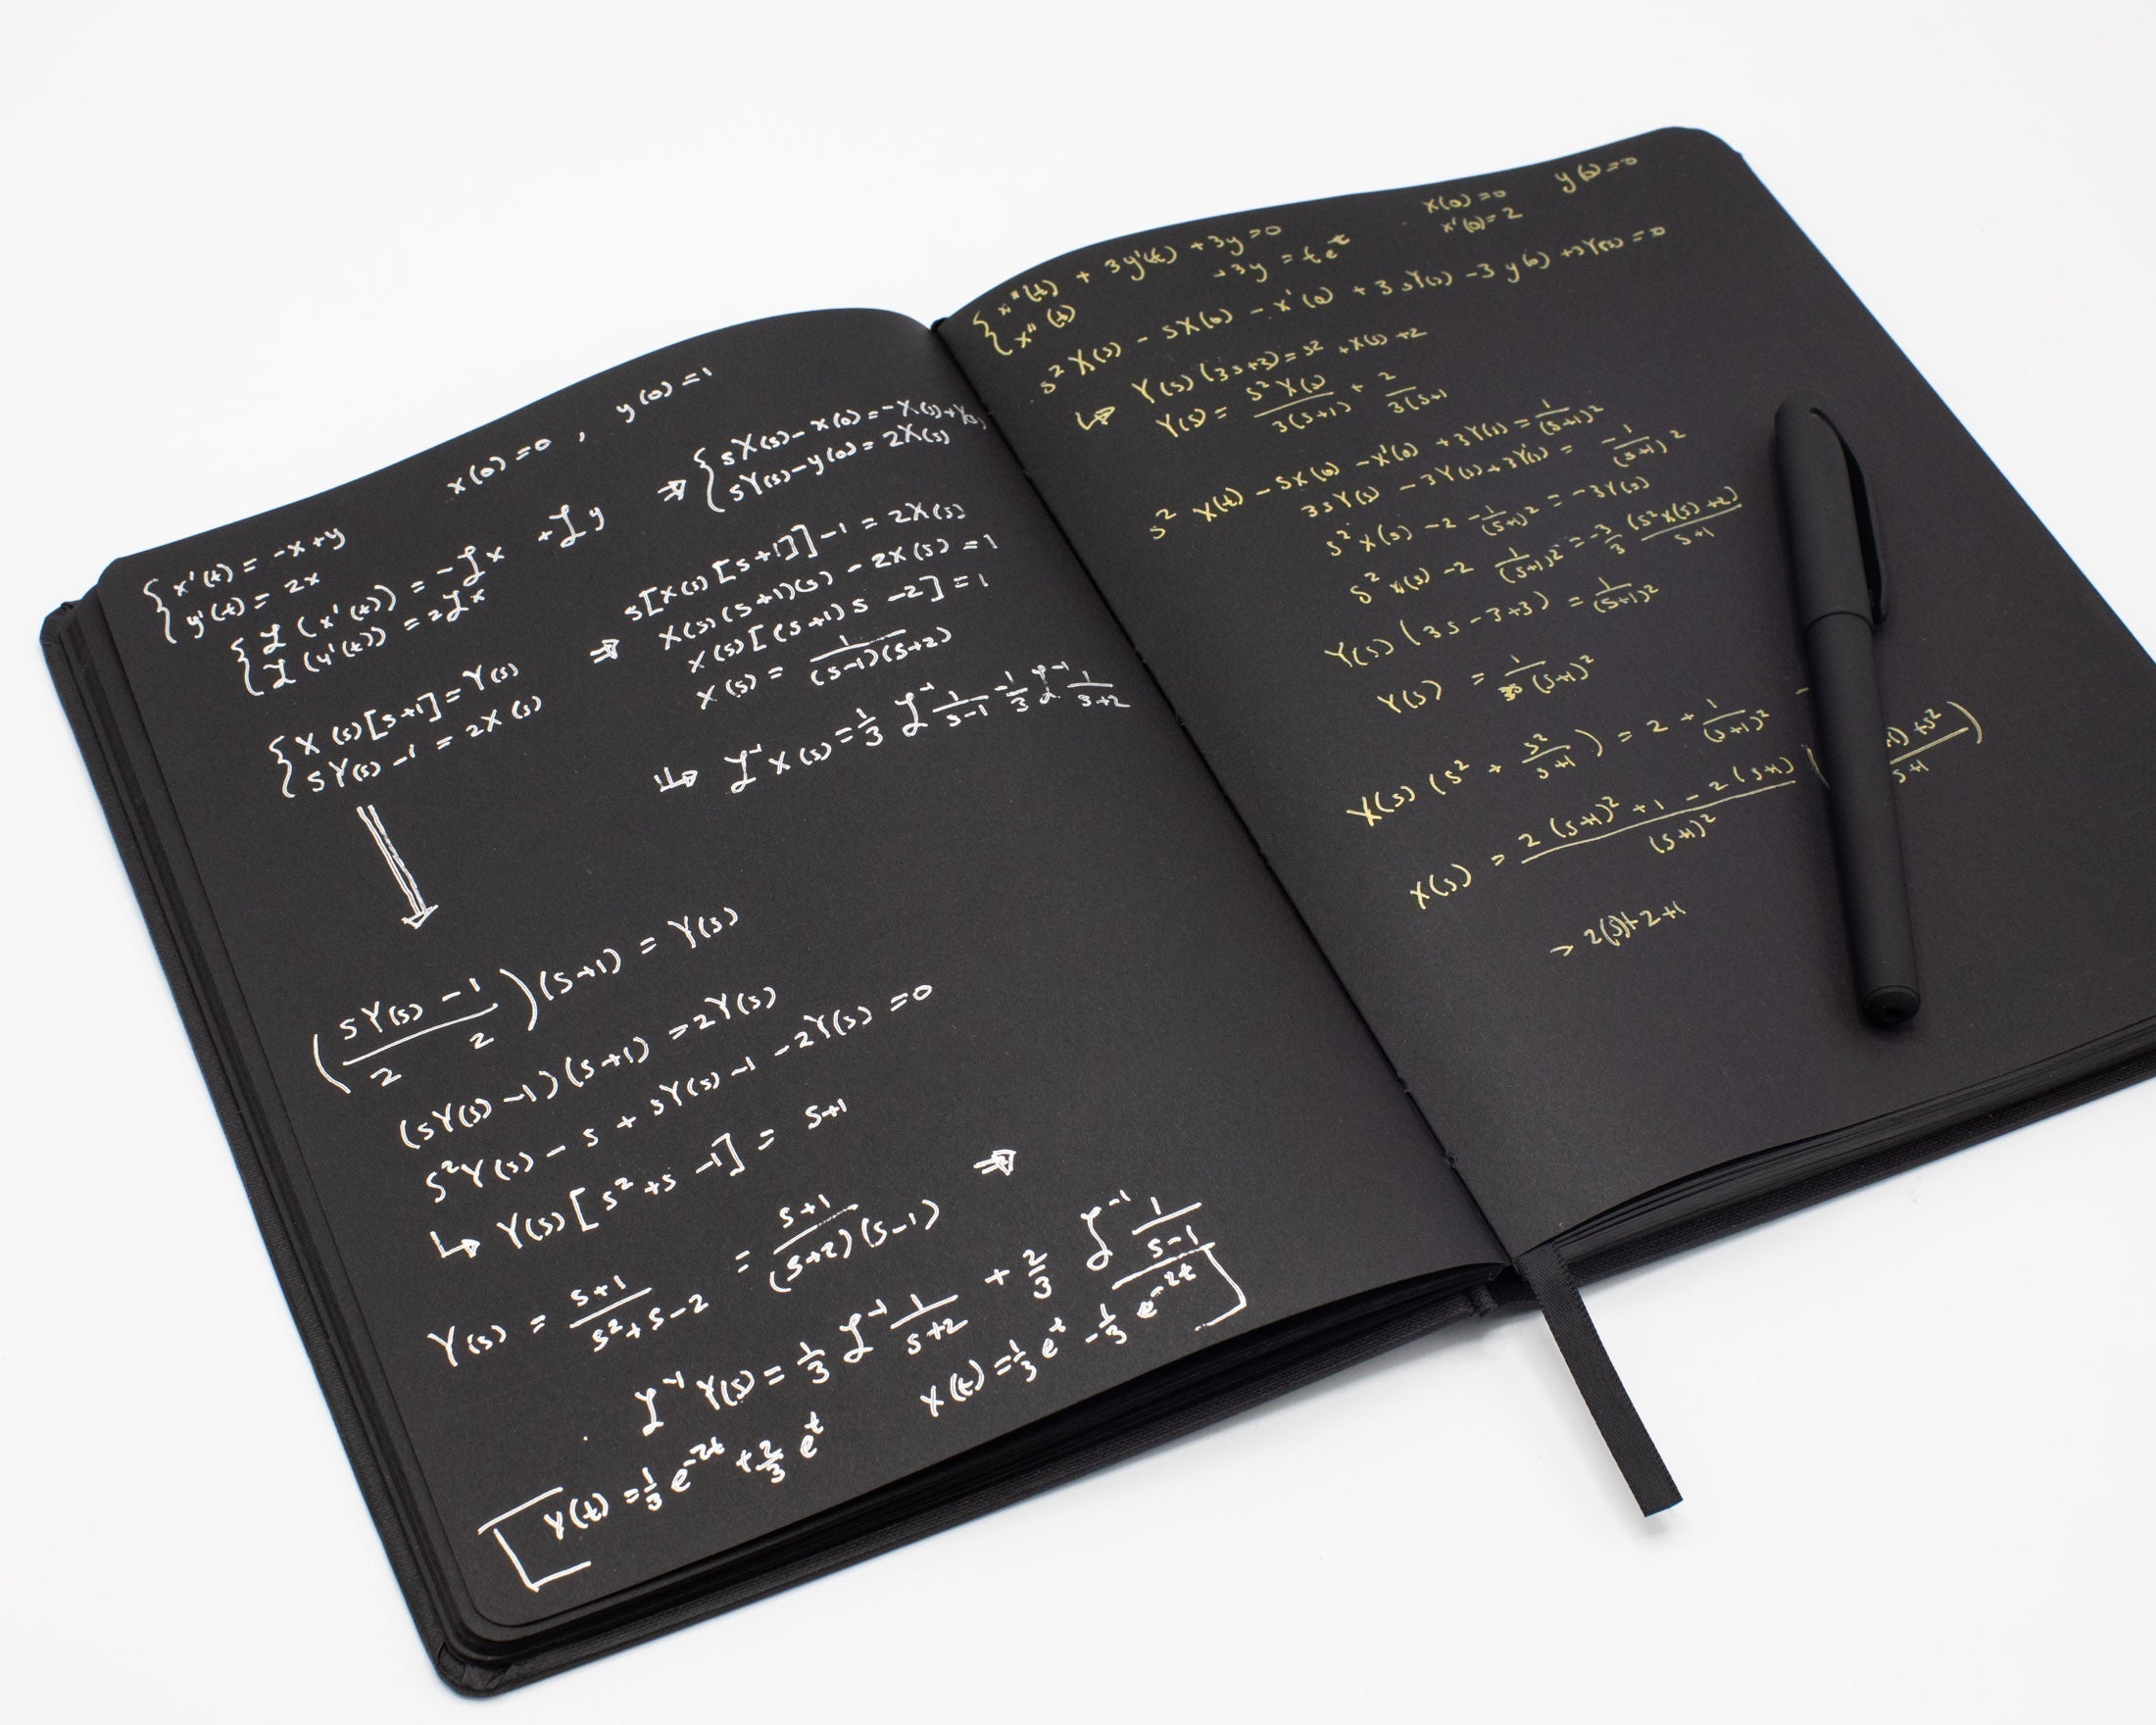 x(0)=0 , y(0)=1
{ x'(t) = -x+y
y'(t) = 2x
{ ℒ(x'(t)) = -ℒx +ℒy
ℒ(y'(t)) = 2ℒx
⇒ { sX(s)-x(0)=-X(s)+Y(s)
sY(s)-y(0)=2X(s)
{ X(s)[s+1]=Y(s)
sY(s)-1 = 2X(s)
⇒ s[X(s)[s+1]]-1 = 2X(s)
X(s)(s+1)(s) - 2X(s) = 1
X(s)[(s+1)s -2] = 1
X(s) = 1/((s-1)(s+2))
↳ ℒ⁻¹ X(s) = 1/3 ℒ⁻¹ 1/(s-1) -1/3 ℒ⁻¹ 1/(s+2)
((sY(s) -1)/(2 2))(s+1) = Y(s)
(sY(s)-1)(s+1) = 2Y(s)
s²Y(s) - s + sY(s) -1 -2Y(s) = 0
↳ Y(s)[s²+s -1] = s+1
Y(s) = (s+1)/(s²+s-2) = (s+1)/((s+2)(s-1)) ⇒
ℒ⁻¹ Y(s) = 1/3 ℒ⁻¹ 1/(s+2) + 2/3 ℒ⁻¹ 1/(s-1)
y(t) = 1/3 e^-2t + 2/3 e^t
x(t) = 1/3 e^t - 1/3 e^-2t
{ x"(t) + 3y'(t) +3y=0
x"(t) +3y = te^t
x(0)=0
x'(0)=2
y(0)=0
s²X(s) - sX(0) - x'(0) + 3sY(s) -3y(0) +3Y(s) =0
↳ Y(s)(3s+3) = s² +X(s) +2
Y(s) = s²X(s)/(3(s+1)) + 2/(3(s+1
s² X(t) - sX(0) -x'(0) +3Y(s) = 1/(s+1)²
3sY(s) -3Y(s)+3Y(s) = -1/(s+1)²
s²X(s) -2 -1/(s+1)² = -3Y(s)
s²X(s) -2 1/(s+1)² = -3/3 (s²X(s)+2)/(s+1)
Y(s)(3s-3+3) = 1/(s+1)²
Y(s) = 1/(3s(s+1)²
X(s)(s² + s²/(s+1)) = 2 + 1/(s+1)² -
X(s) = (2(s+1)²+1 -2(s+1))/(s+1)² ( 1)+s²/(s+1) )
→ 2(s)+2+1